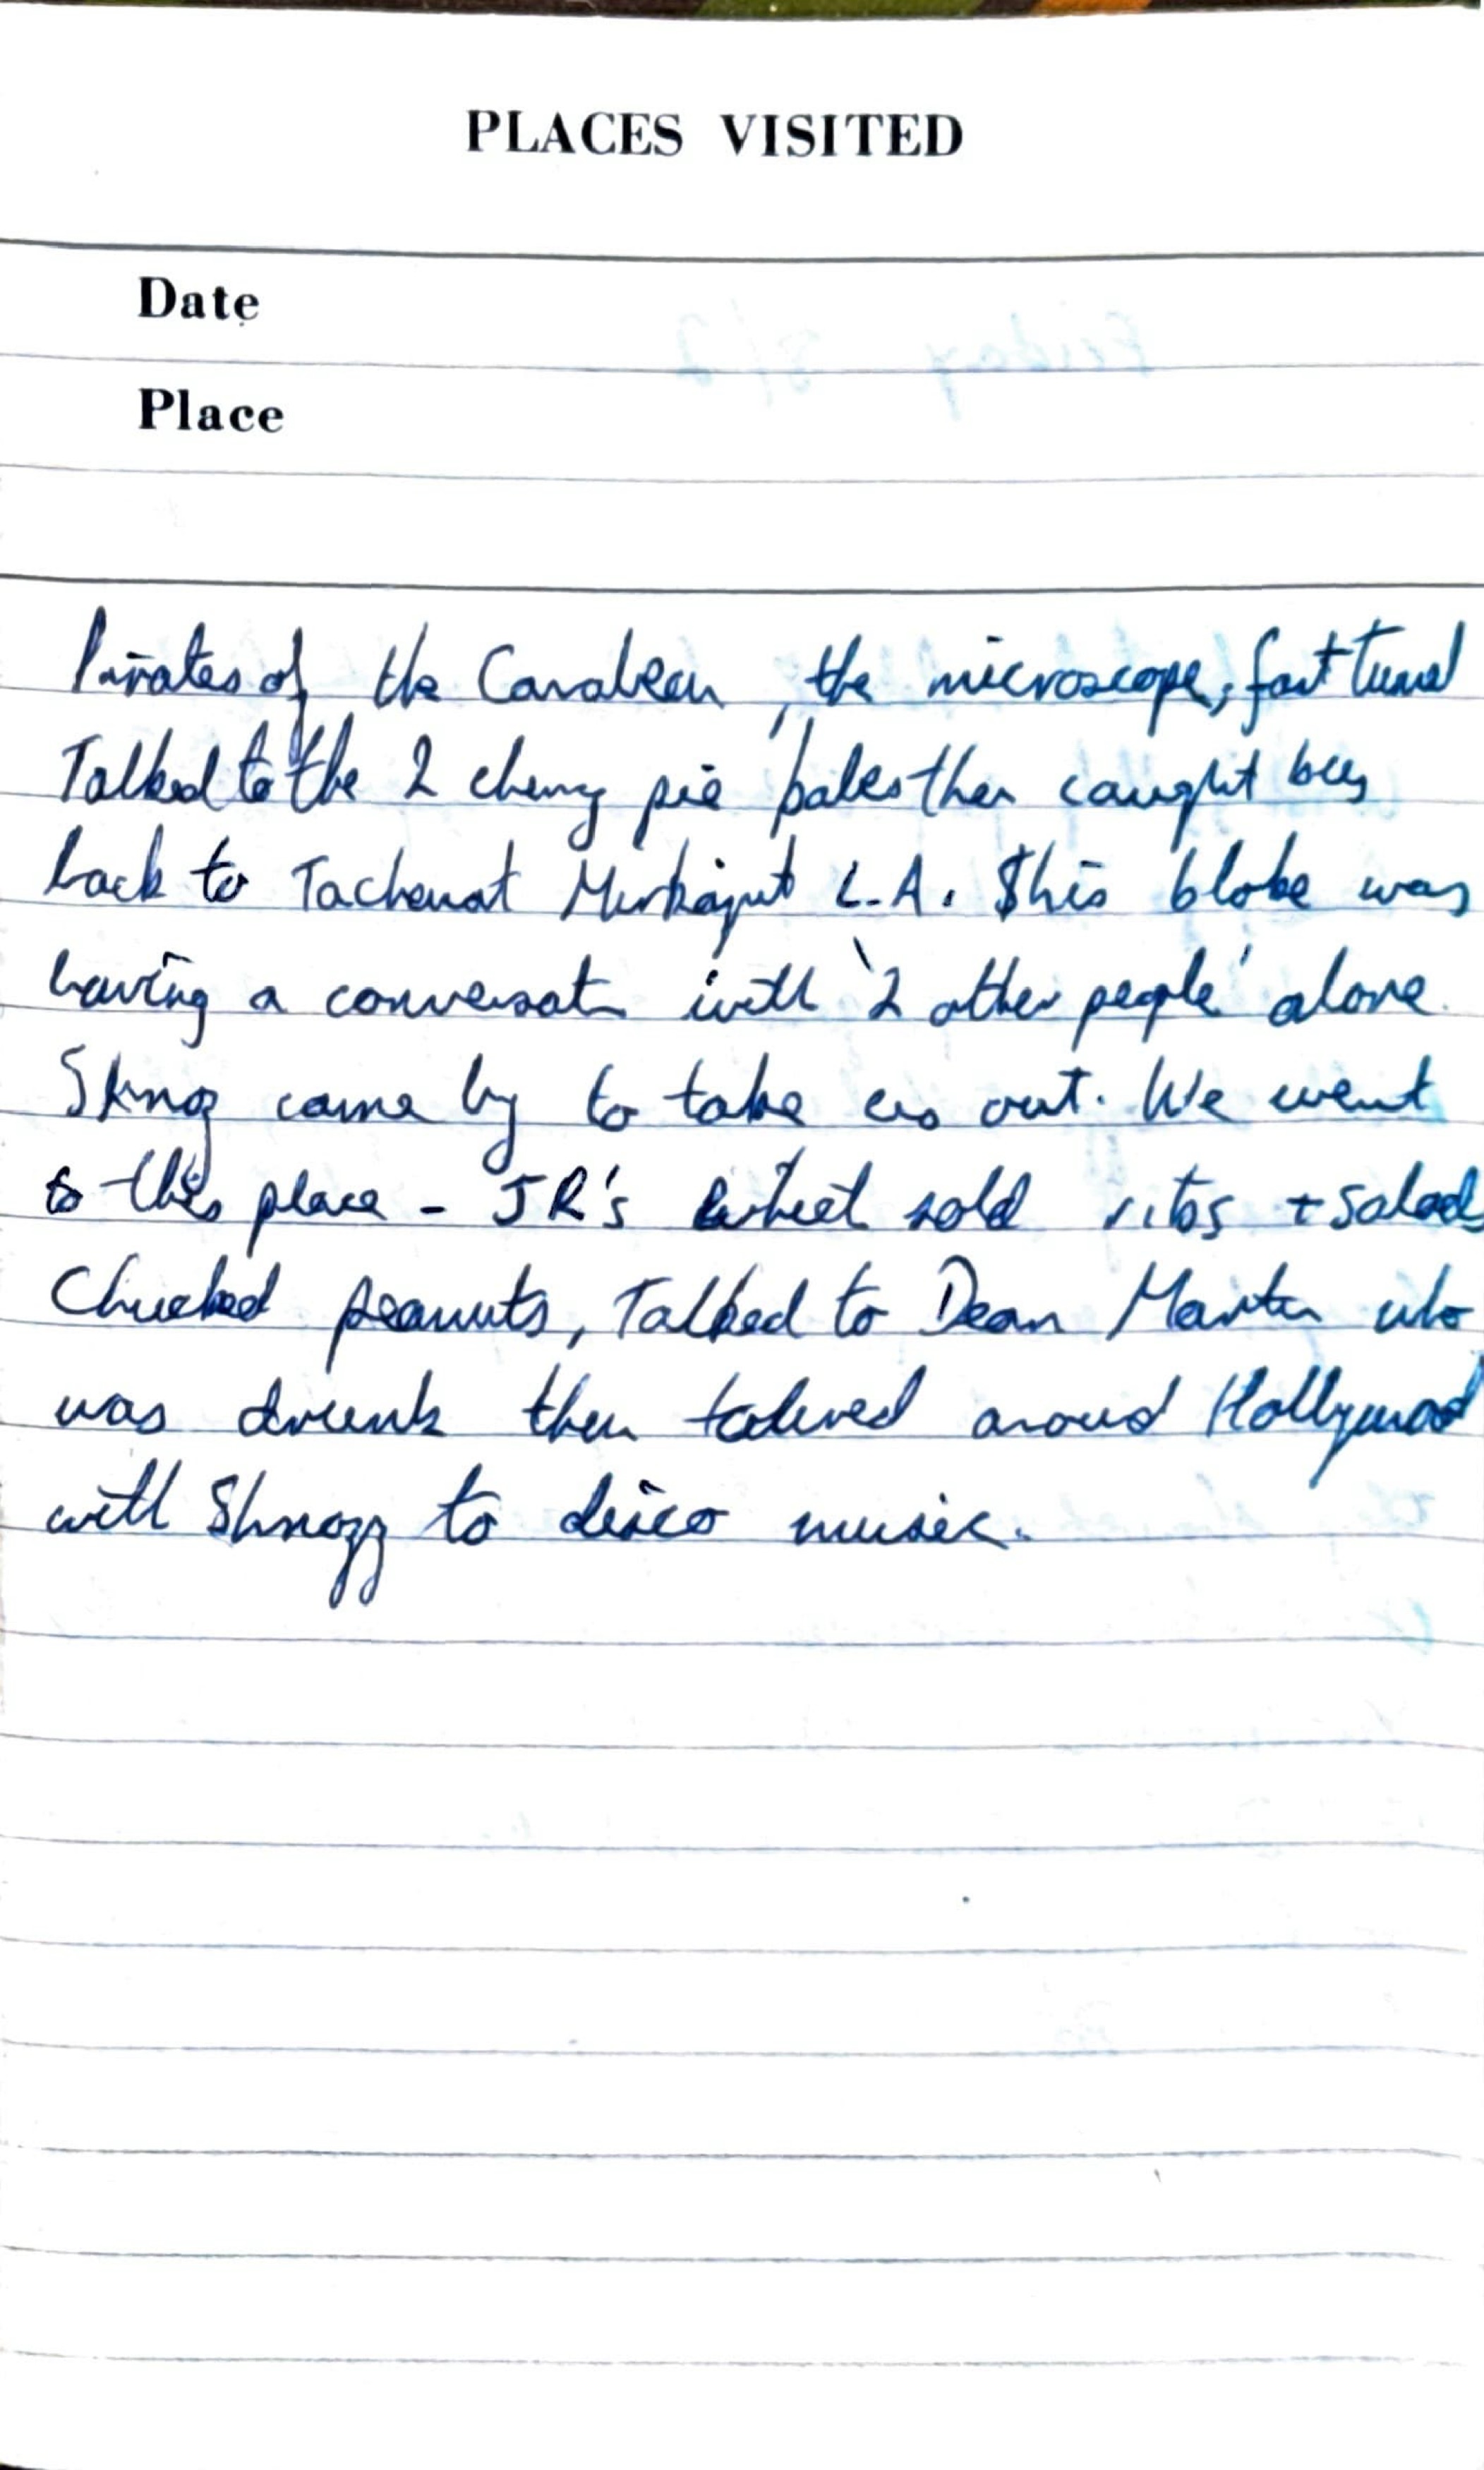 PLACES VISITED
Date
Place
Pirates of the Carabean, the microscope, fast tunel
Talked to the 2 cherry pie bakes then caught bus
back to L.A. This bloke was
having a conversatn with '2 other people' alone.
Shnoz came by to take us out. We went
to this place - JR's which sold ribs + salad
Chucked peanuts, Talked to Dean Martin who
was drunk then toured around Hollywood
with Shnozz to disco music.